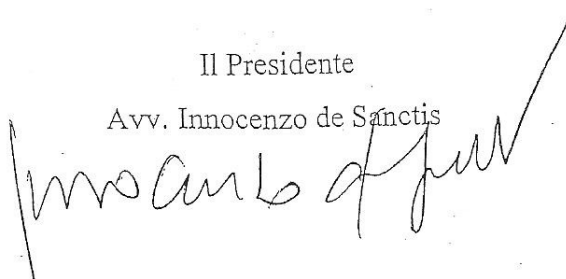 Il Presidente
Avv. Innocenzo de Sanctis